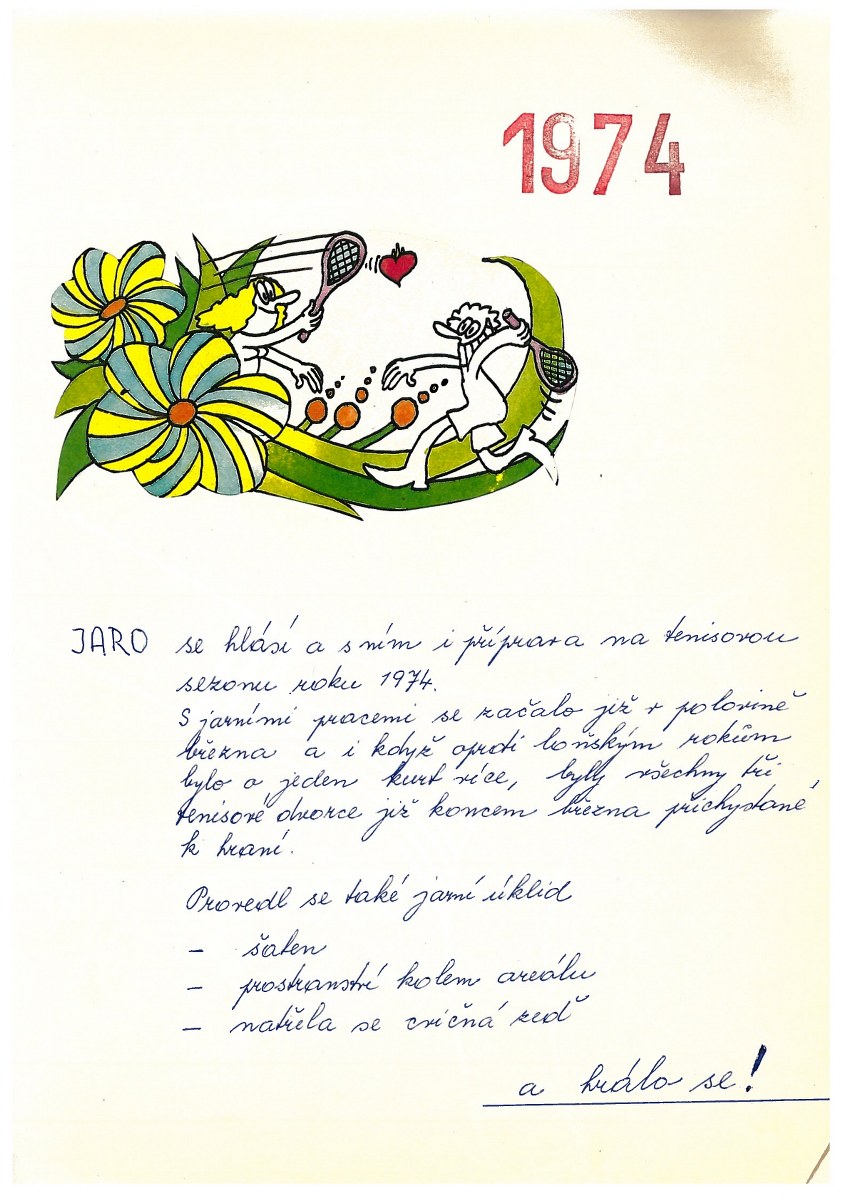 1974
JARO se hlásí a s ním i příprava na tenisovou
sezonu roku 1974.
S jarními pracemi se začalo již v polovině
března a i když oproti loňským rokům
bylo o jeden kurt více, byly všechny tři
tenisové dvorce již koncem března přichystané
k hraní.
Provedl se také jarní úklid
- šaten
- prostranství kolem areálu
- natřela se cvičná zeď
a hrálo se!